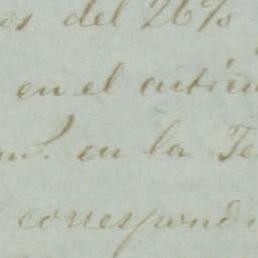 os del 26%
en el artícu
en la Te
correspondi